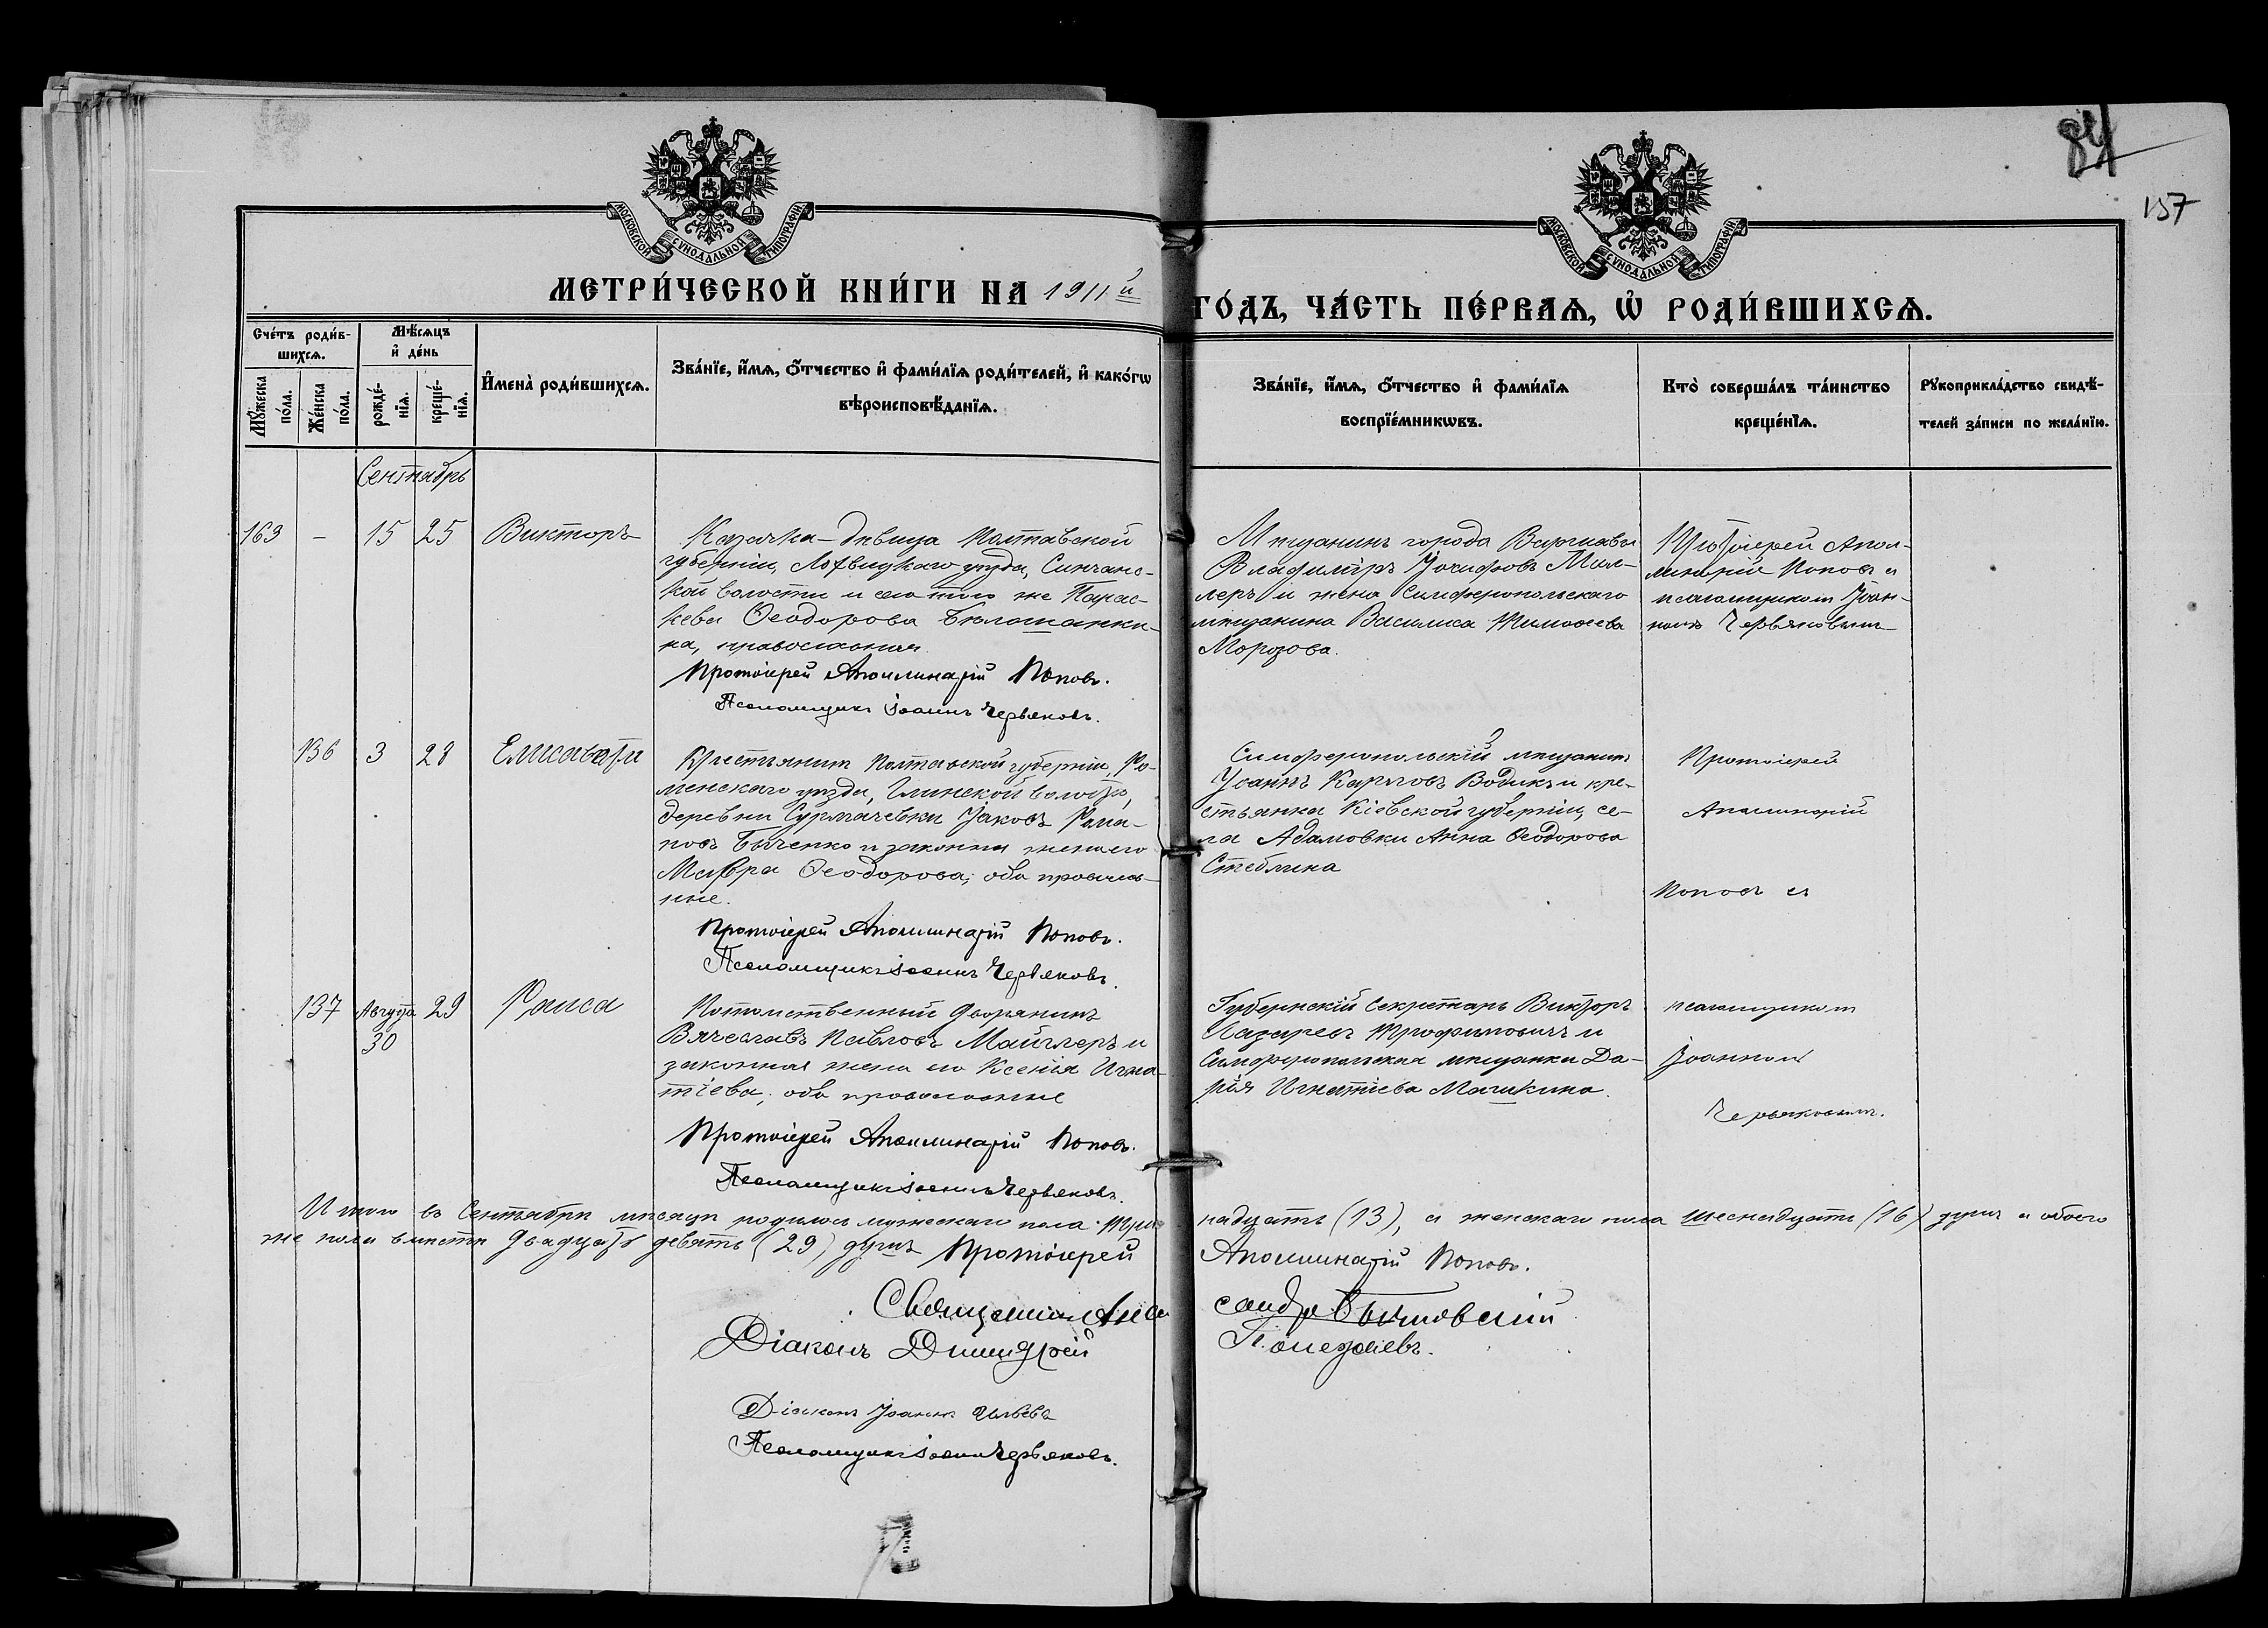 84
157
МОСКОВСКОЙ СУНОДАЛЬНОЙ ТИПОГРАФІИ
МОСКОВСКОЙ СУНОДАЛЬНОЙ ТИПОГРАФІИ
МЕТРИ́ЧЕСКОЙ КНИ́ГИ НА 1911 й ГО́ДЪ, ЧА́СТЬ ПЕ́РВАѦ, Ѡ҆ РОДИ́ВШИХСѦ.
Сче́тъ роди́в-
шихсѧ.
Мꙋ́жеска по́ла.
Же́нска по́ла.
Мѣ́сѧцъ
и҆ де́нь
рожде́-
нїѧ.
креще́-
нїѧ.
И҆мена̀ роди́вшихсѧ.
Зва́нїе, и҆́мѧ, ѻ҆́тчество и҆ фами́лїѧ роди́телей, и҆ како́гѡ
вѣроисповѣ́данїѧ.
Зва́нїе, и҆́мѧ, ѻ҆́тчество и҆ фами́лїѧ
воспрїе́мникѡвъ.
Кто̀ соверша́лъ та́инство
креще́нїѧ.
Рꙋкоприкла́дство свидѣ́-
телей за́писи по жела́нїю.
Сентябрь
163 – 15 25 Викторъ
Казачка-девица Полтавской
губерніи, Лохвицкаго уѣзда, Синчанс-
кой волости и села того же Парас-
кева Ѳеодорова
на, православная.
Протоіерей Аполлинарій Поповъ.
Псаломщикъ Іоаннъ Червяковъ.
Мѣщанинъ города Варшавы
Владиміръ Іосифовъ Мил-
леръ и жена Симферопольскаго
мѣщанина Василиса Тимоѳеева
Морозова.
Протоіерей Апол-
линарій Поповъ и
псаломщикомъ Іоан-
номъ Червяковымъ
136 3 28 Елисаветъ
Крестьянинъ Полтавской губерніи, Ро-
менскаго уѣзда, Глинской волости,
деревни Сурмачевки Іаковъ Рома-
новъ Бытченко и законная жена его
Мавра Ѳеодорова; оба православ-
ные.
Протоіерей Аполлинарій Поповъ.
Псаломщикъ Іоаннъ Червяковъ.
Симферопольскій мѣщанинъ
Іоаннъ Карповъ Водикъ и кре-
стьянка Кіевской губерніи, се-
ла Адамовки Анна Ѳеодорова
Стеблина
Протоіерей
Аполлинарій
Поповъ и
137 Августа 30 29 Раиса
Потомственный дворянинъ
Вячеславъ Павловъ Майглеръ и
законная жена его Ксенія Игна-
тіева; оба православные
Протоіерей Аполлинарій Поповъ.
Псаломщикъ Іоаннъ Червяковъ.
Губернскій Секретарь Викторъ
Лазаревъ Трофимовичъ и
Симферопольская мѣщанка Да-
рія Игнатіева Машкина.
псаломщикомъ
Іоанномъ
Червяковымъ.
Итого въ Сентябрѣ мѣсяцѣ родилось мужескаго пола три-
надцать (13), а женскаго пола шеснадцать (16) душъ а обоего
же пола вмѣстѣ двадцать девять (29) душъ Протоіерей
Аполлинарій Поповъ.
Священникъ Алек
сандръ
Діаконъ Димитрій
Діаконъ Іоаннъ Ильевъ
Псаломщикъ Іоаннъ Червяковъ.